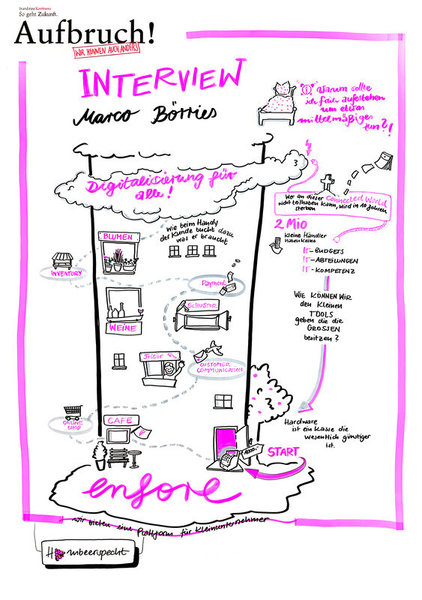 So geht Zukunft.
Aufbruch!
WIR KÖNNEN AUCH ANDERS
INTERVIEW
Marco Börries
Warum sollte
ich früh aufstehen
um etwas
mittelmäßiges
tun?!
Digitalisierung für
alle!
Wer an dieser connected World
nicht teilhaben kann, wird in 10 Jahren
sterben
2 Mio
kleine Händler
haben keine
IT-BUDGETS
IT-ABTEILUNGEN
IT-KOMPETENZ
WIE KÖNNEN WIR
den Kleinen
TOOLS
geben die die
GROSSEN
besitzen?
Hardware
ist ein Klasse die
wesentlich günstiger
ist.
START
BLUMEN
Wie beim Handy
der Kunde bucht dazu
was er braucht
INVENTORY
Payment
WEINE
CUSTOMER
COMMUNICATION
ONLINE
SHOP
CAFE
enfore
wir bieten eine Plattform für Kleinunternehmer
Himbeerspecht